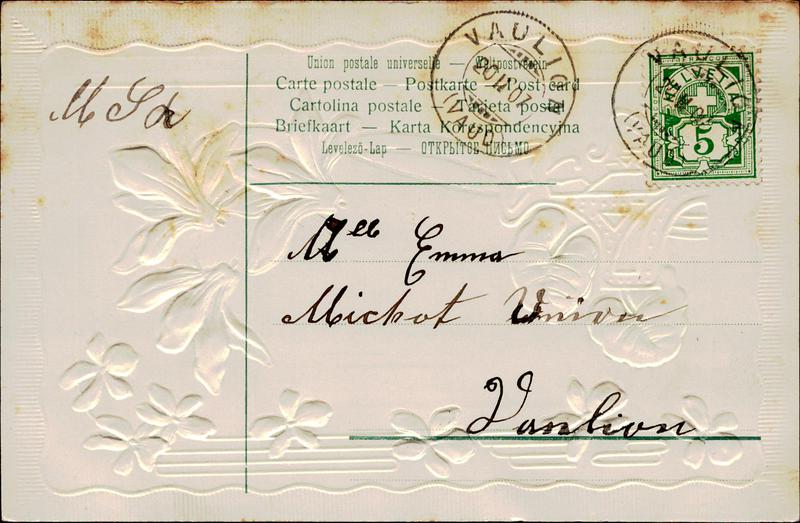 Union postale universelle — Weltpostverein
Carte postale — Postkarte — Post card
Cartolina postale — Tarjeta postal
Briefkaart — Karta Korespondencyjna
Levelező-Lap — ОТКРЫТОЕ ПИСЬМО
VAULIO
(VAUD)
HELVETIA
5
VAUL
(VAU
Mlle Emma
Michot Union
Vaulion